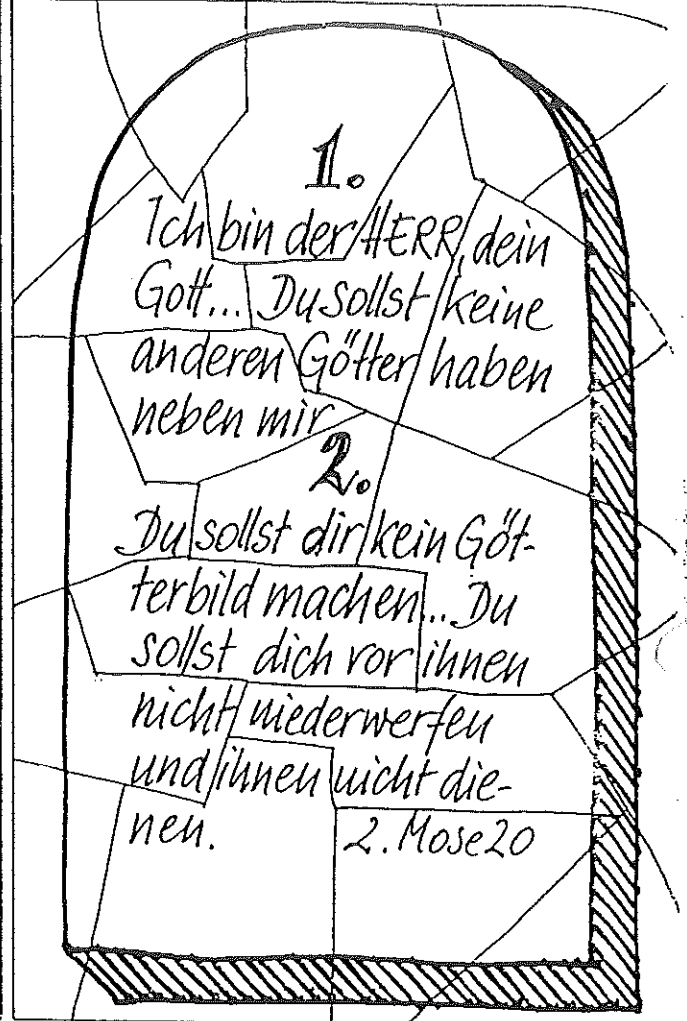 1.
Ich bin der HERR, dein
Gott... Du sollst keine
anderen Götter haben
neben mir
2.
Du sollst dir kein Göt-
terbild machen... Du
sollst dich vor ihnen
nicht niederwerfen
und ihnen nicht die-
nen. 2. Mose 20